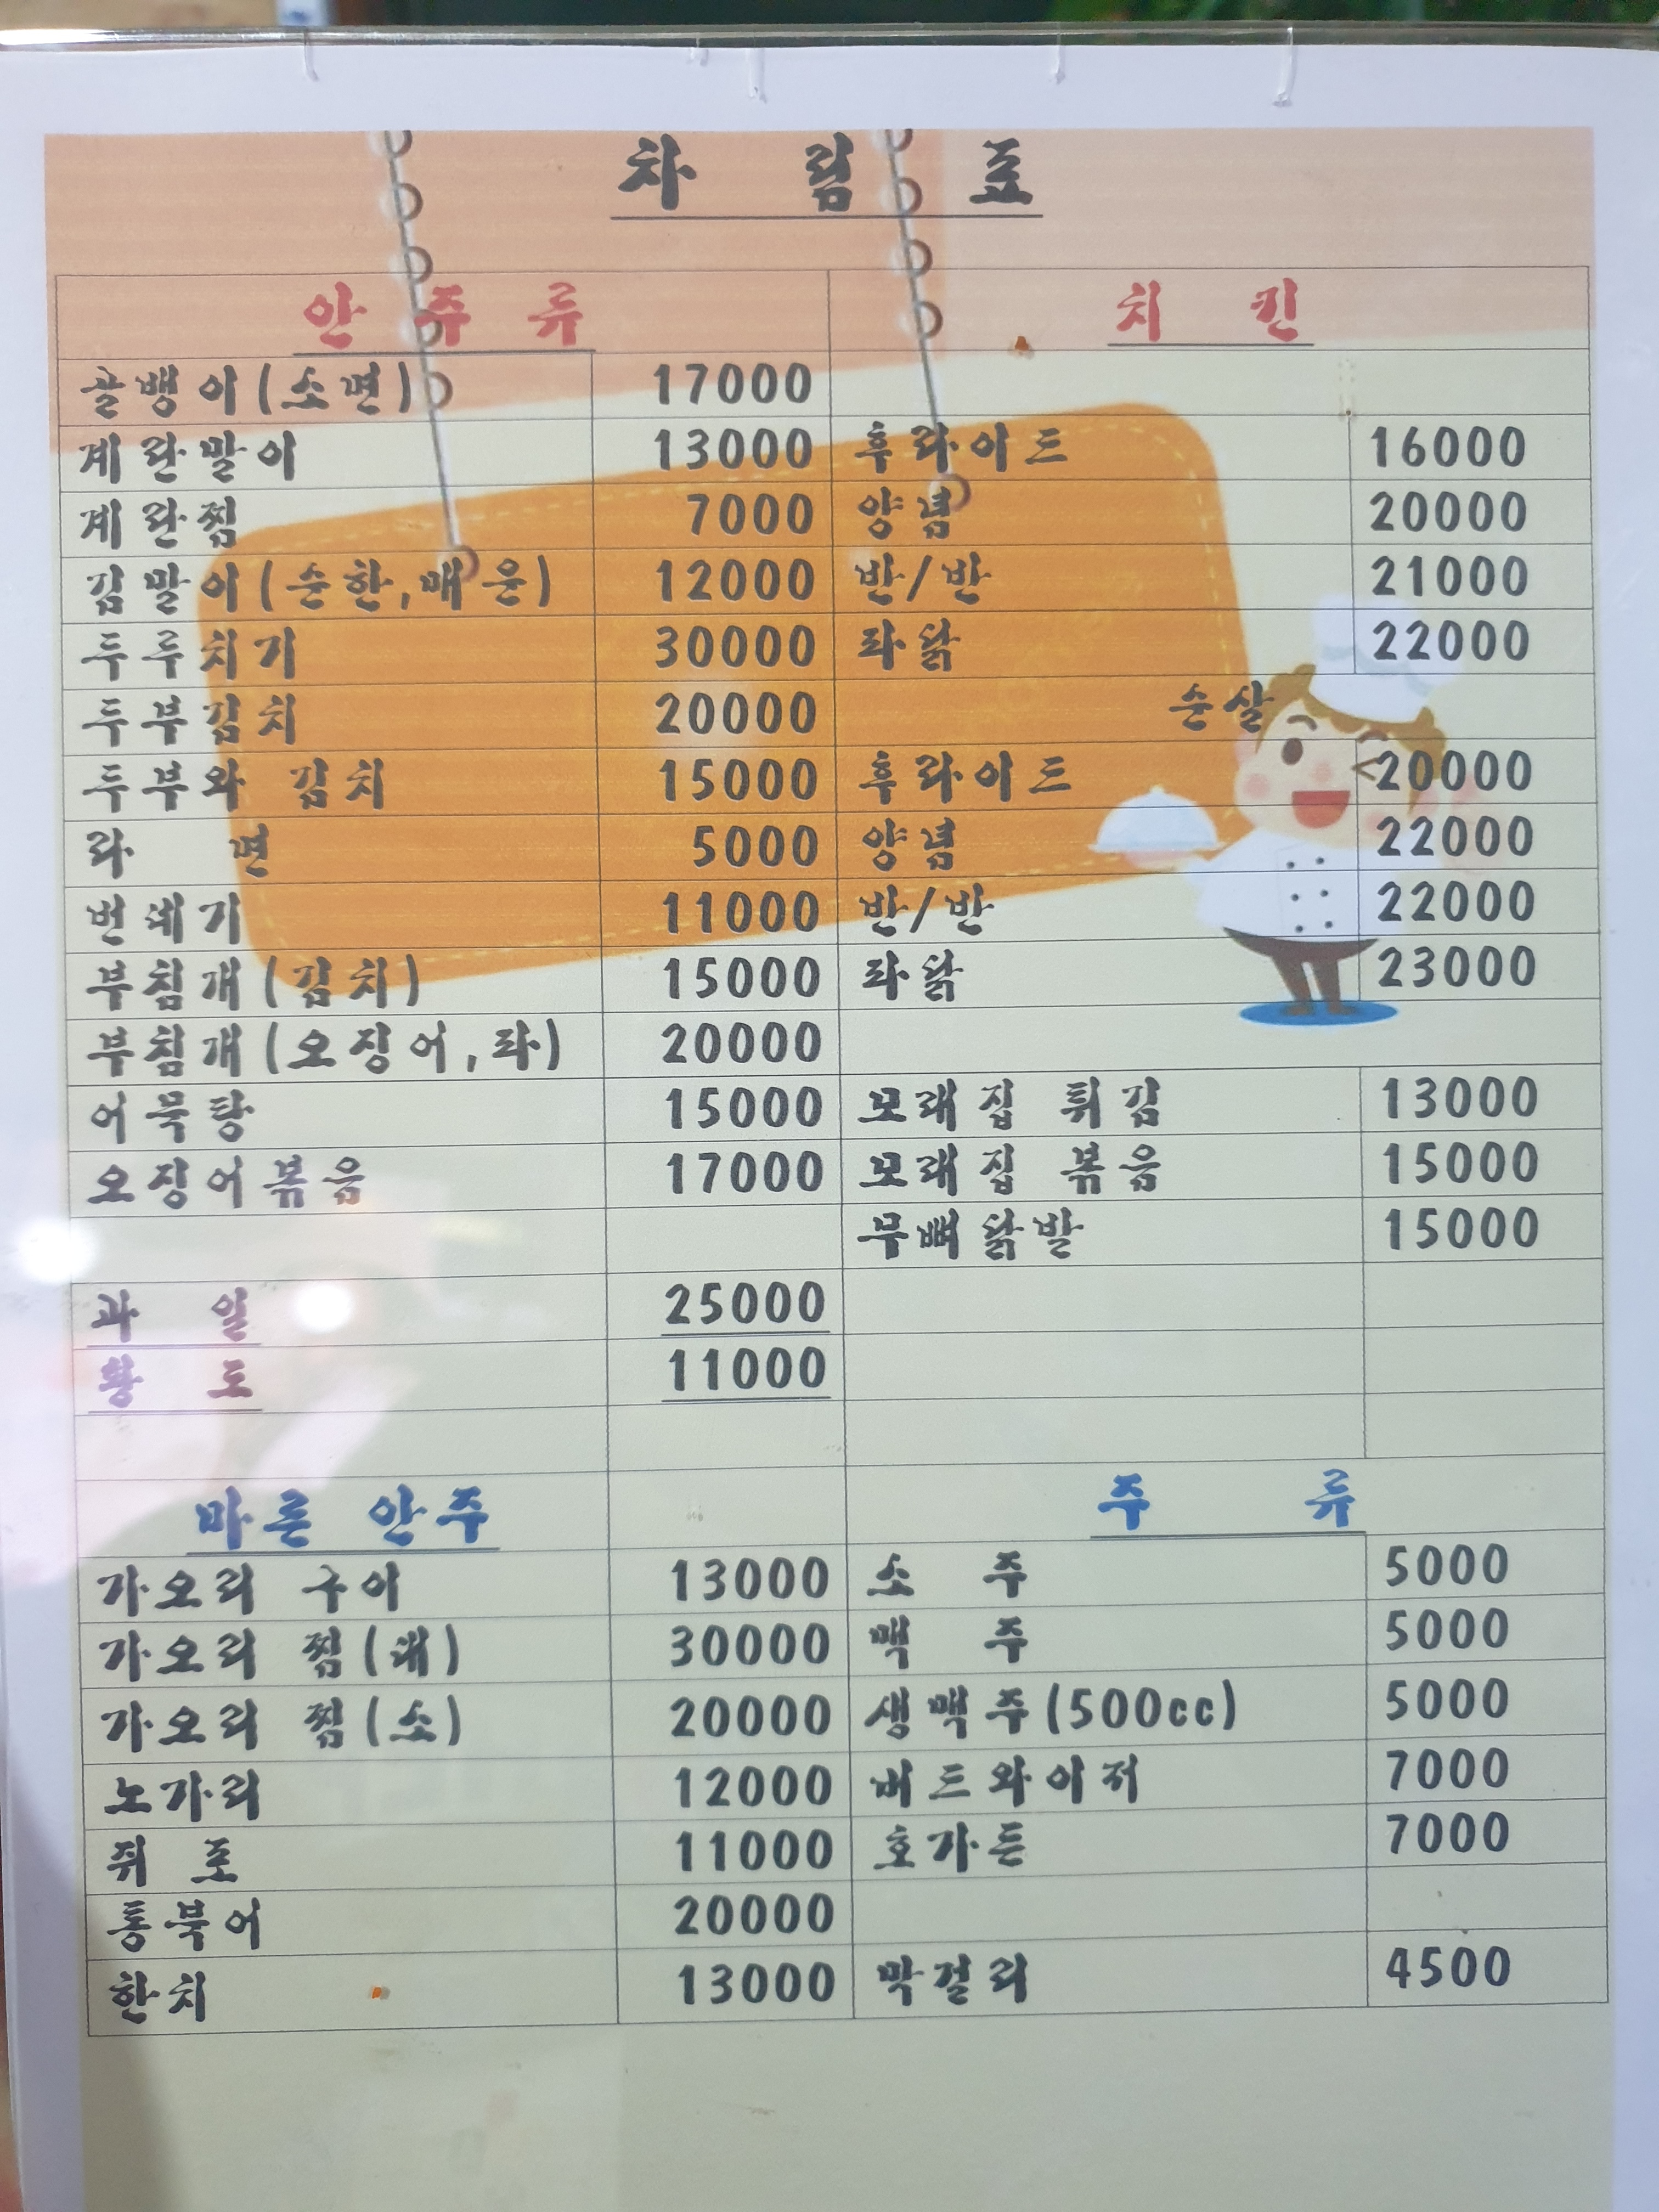 차림표
안주류 치킨
골뱅이(소면) 17000
계란말이 13000 후라이드 16000
계란찜 7000 양념 20000
김말이(순한,매운) 12000 반/반 21000
두루치기 30000 파닭 22000
두부김치 20000 순살
두부와 김치 15000 후라이드 20000
라 면 5000 양념 22000
번데기 11000 반/반 22000
부침개(김치) 15000 파닭 23000
부침개(오징어,파) 20000
어묵탕 15000 모래집 튀김 13000
오징어볶음 17000 모래집 볶음 15000
무뼈닭발 15000
과 일 25000
황 도 11000
마른 안주 주 류
가오리 구이 13000 소 주 5000
가오리 찜(대) 30000 맥 주 5000
가오리 찜(소) 20000 생맥주(500cc) 5000
노가리 12000 버드와이저 7000
쥐 포 11000 호가든 7000
통북어 20000
한치 13000 막걸리 4500